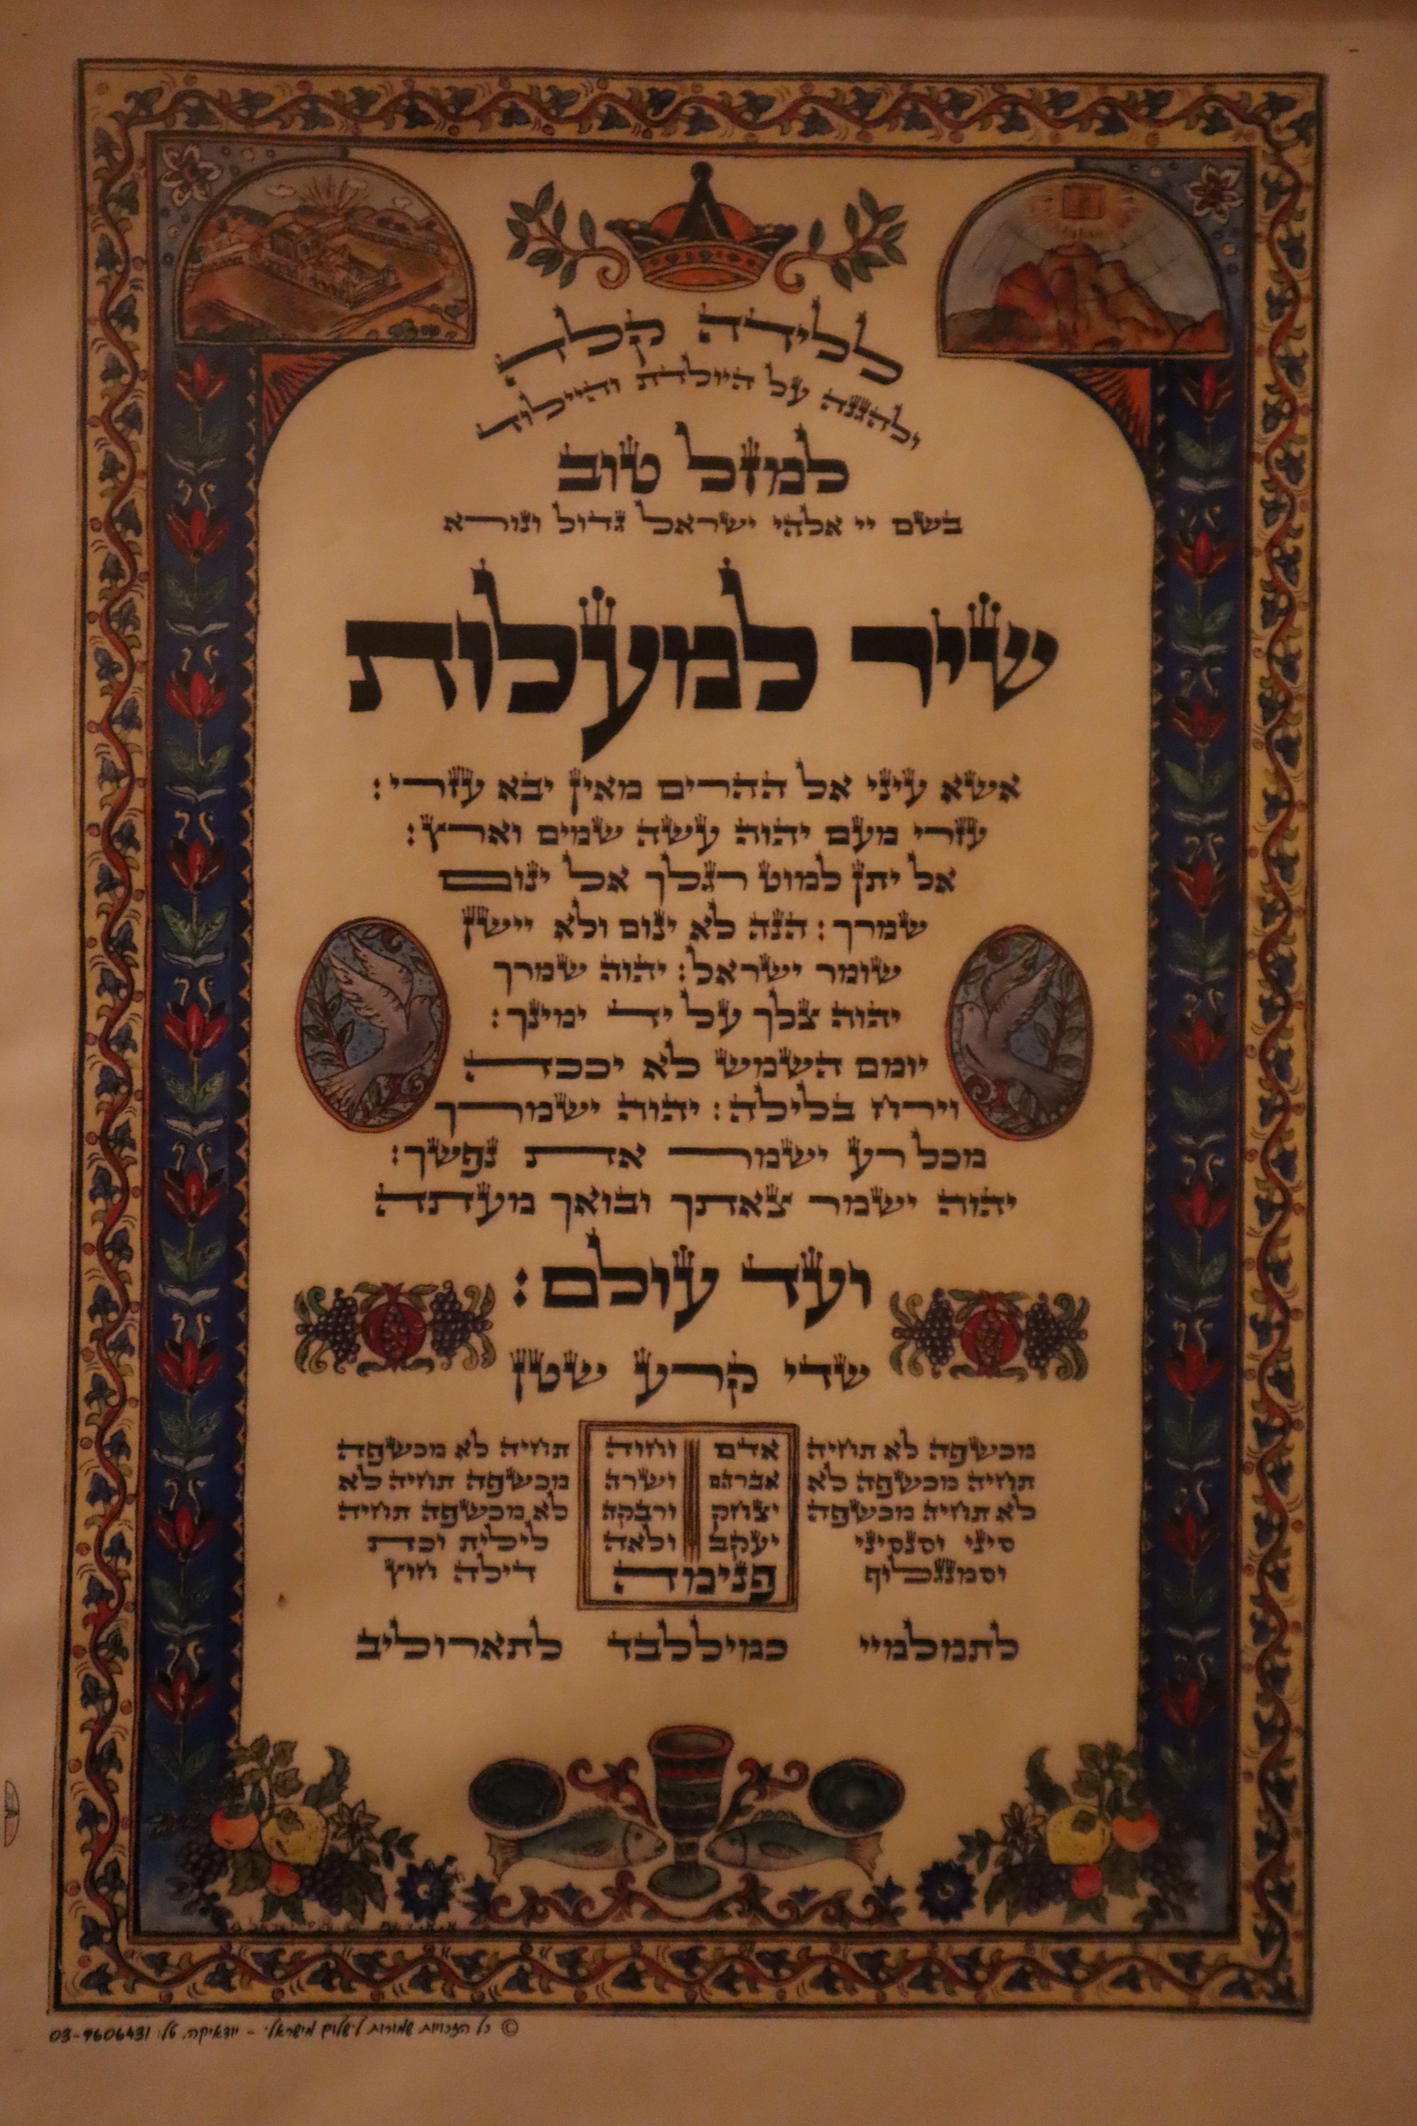 ללידה קלה
ולהגנה על היולדת והיילוד
למזל טוב
בשם יי אלהי ישראל גדול ונורא
שיר למעלות
אשא עיני אל ההרים מאין יבא עזרי:
עזרי מעם יהוה עשה שמים וארץ:
אל יתן למוט רגלך אל ינום
שמרך: הנה לא ינום ולא יישן
שומר ישראל: יהוה שמרך
יהוה צלך על יד ימינך:
יומם השמש לא יככה
וירח בלילה: יהוה ישמרך
מכל רע ישמר את נפשך:
יהוה ישמר צאתך ובואך מעתה
ועד עולם:
שדי קרע שטן
מכשפה לא תחיה
תחיה מכשפה לא
לא תחיה מכשפה
סיני וסנסיני
וסמנגלוף
אדם וחוה
אברהם ושרה
יצחק ורבקה
יעקב ולאה
פנימה
תחיה לא מכשפה
מכשפה תחיה לא
לא מכשפה תחיה
לילית וכת
דילה חוץ
לתמלמיי כמיללבד לתארוליב
© כל הזכויות שמורות לשלום מישראלי - יודאיקה. טל: 03-9606431